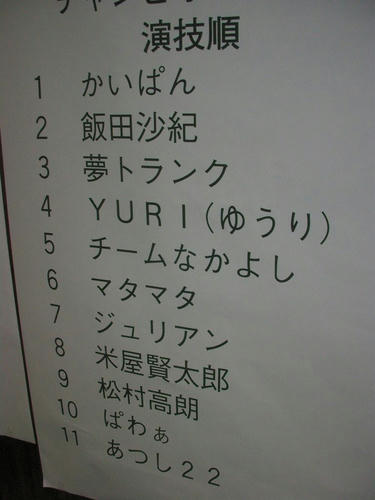 演技順
1 かいぱん
2 飯田沙紀
3 夢トランク
4 YURI(ゆうり)
5 チームなかよし
6 マタマタ
7 ジュリアン
8 米屋賢太郎
9 松村高朗
10 ぱわぁ
11 あつし22